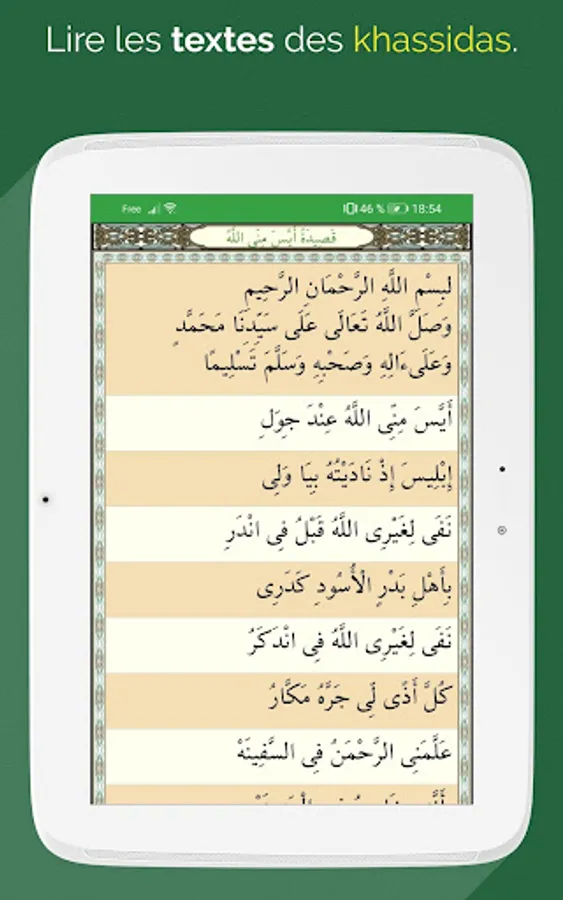 Lire les textes des khassidas.
Free 46 % 18:54
قَصِيدَةُ أَيَّسَ مِنِّى اللَّهُ
لبِسْمِ اللَّهِ الرَّحْمَانِ الرَّحِيمِ
وَصَلَّ اللَّهُ تَعَالَى عَلَى سَيِّدِنَا مَحَمَّدٍ
وَعَلَىءَالِهِ وَصَحْبِهِ وَسَلَّمَ تَسْلِيمًا
أَيَّسَ مِنِّى اللَّهُ عِنْدَ جِوَلِ
إِبْلِيسَ إِذْ نَادَيْتُهُ بِيَا وَلِى
نَفَى لِغَيْرِى اللَّهُ قَبْلُ فِى انْدَرِ
بِأَهْلِ بَدْرٍ الْأُسُودِ كَدَرِى
نَفَى لِغَيْرِى اللَّهُ فِى انْدَكَرُ
كُلَّ أَذًى لِى جَرَّهُ مَكَّارُ
عَلَّمَنِى الرَّحْمَنُ فِى السَّفِينَهْ